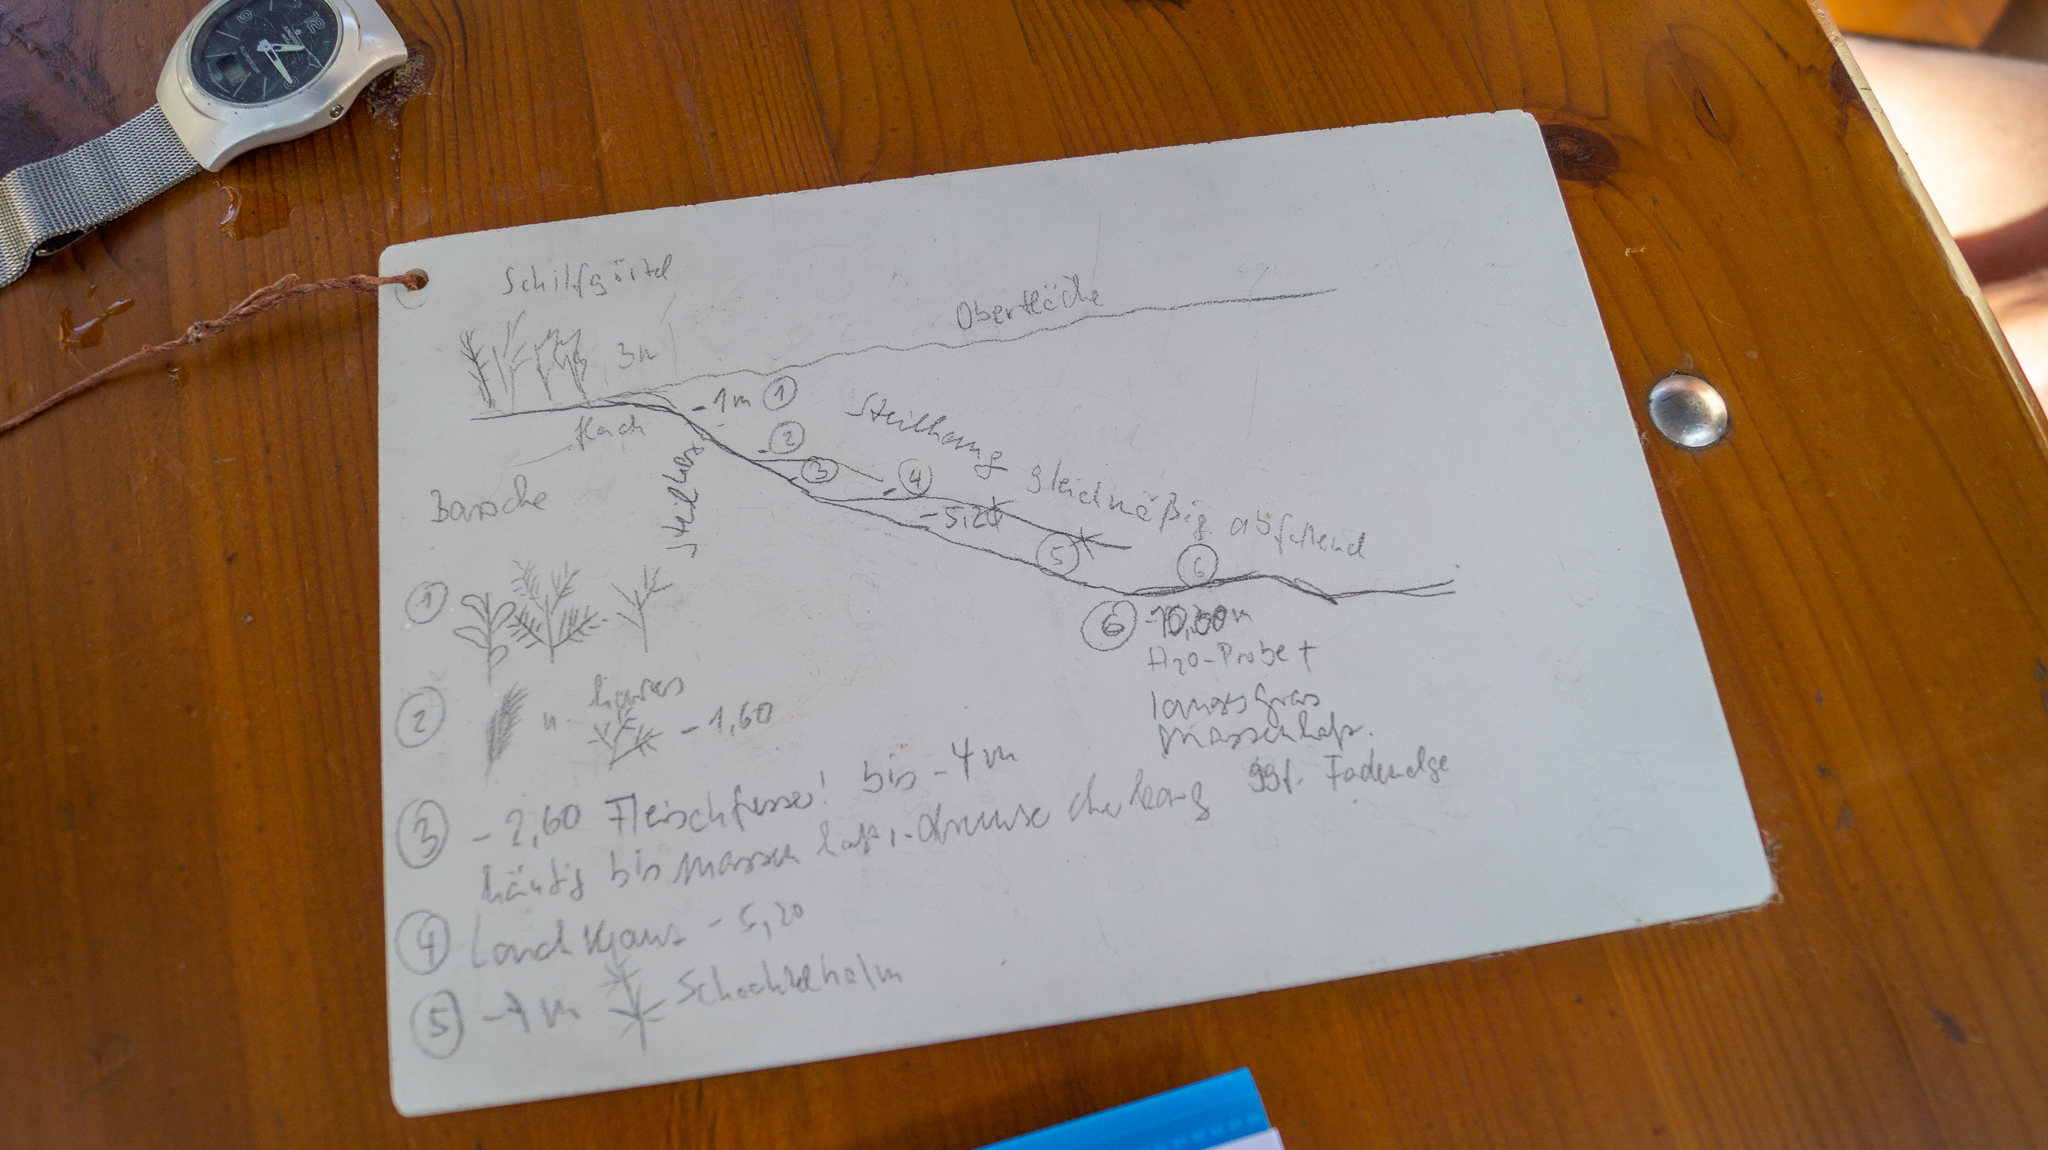 Schilfgürtel
Oberfläche
3m
-1m ①
flach
②
③
④
Steilhang gleichmäßig abfallend
Steilhang
-5,20
⑤
⑥
Barsche
①
⑥ -10,30m
H₂O-Probe +
② u. -1,60
massenhaft.
③ -2,60 Fleischfresser! bis -4m
häufig bis massenhaft, ggf. Fadenalge
④ -5,20
⑤ -7m